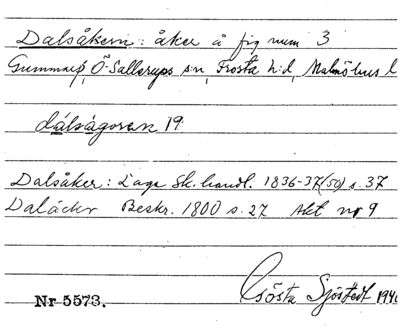 Dalsåkern: åker å fig num 3
Gummarp, Ö. Sallerups s:n, Frosta h:d, Malmöhus l
dálságoran 19
Dalsåker: Laga Sk. handl. 1836-37(50) s. 37
Daläcker Beskr. 1800 s. 27 Akt nr 9
Gösta Sjöstedt 194
Nr 5573.